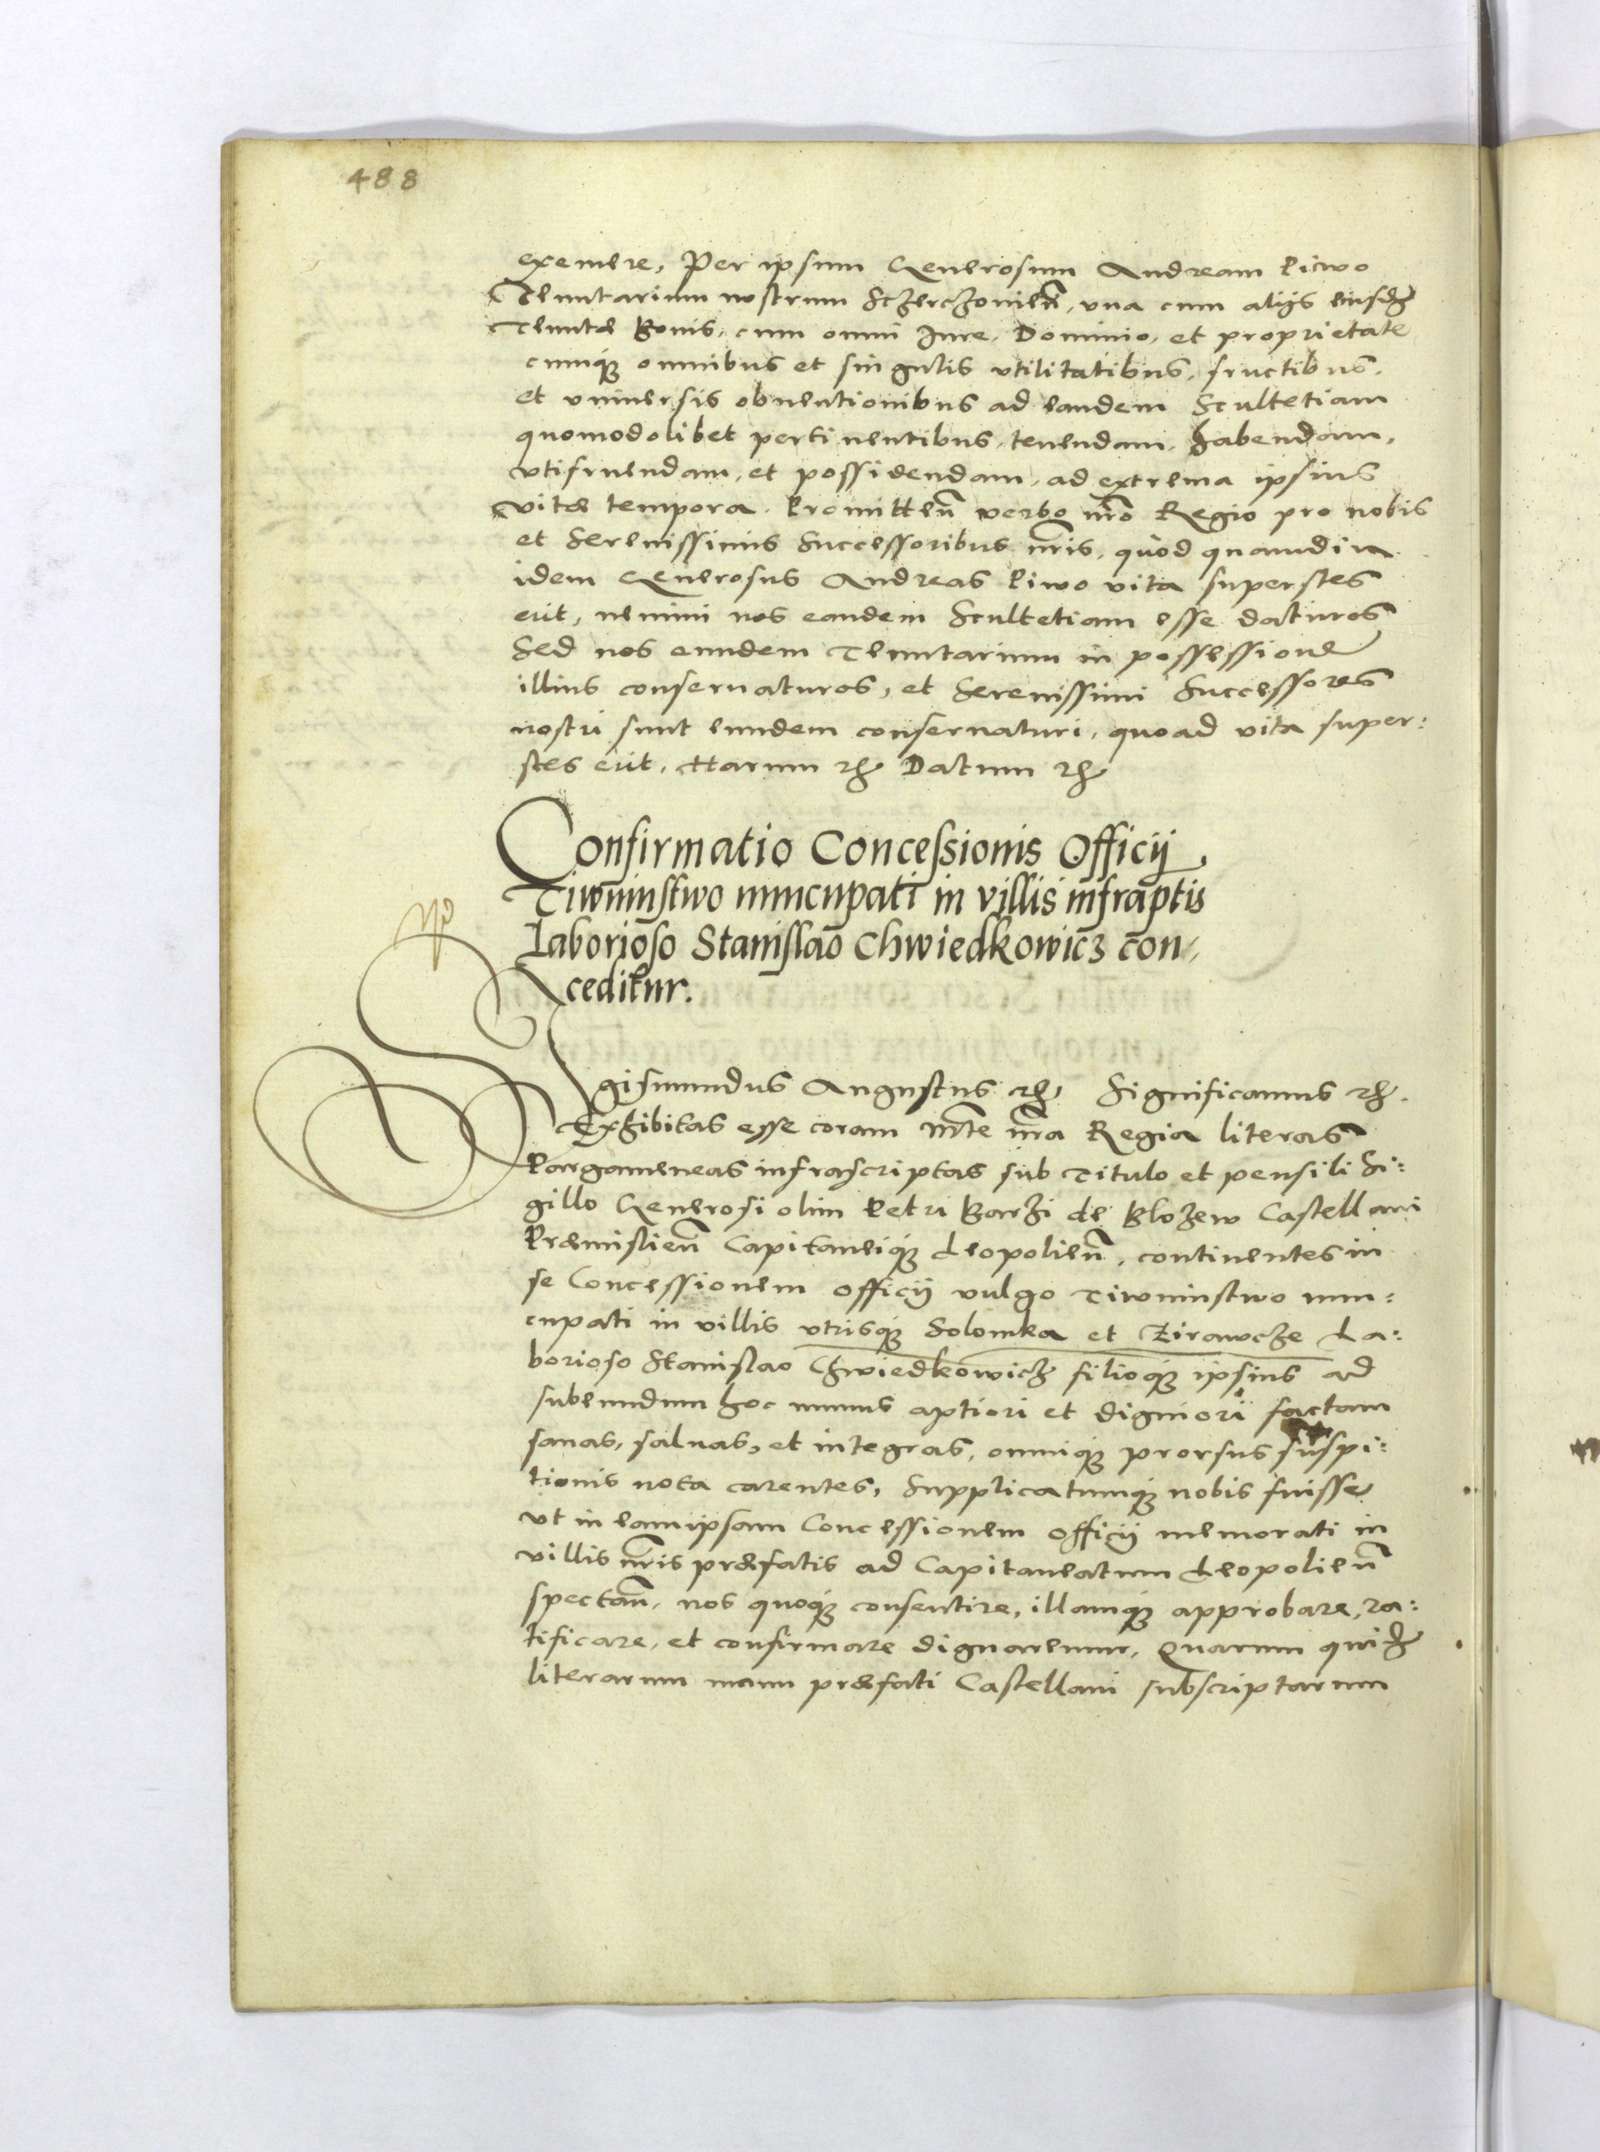 488
exemere, Per ipsum Generosum Andream Piwo
Tenutarium nostrum Sczerczovien̄, vna cum alijs eiusdē
Tenutæ Bonis, cum omni Iure, Dominio, et proprietate
cumq́; omnibus et singulis vtilitatibus, fructibus,
et vniuersis obuentionibus ad eandem Scultetiam
quomodolibet pertinentibus, tenendam, habendam,
vtifruendam, et possidendam, ad extrema ipsius
vitæ tempora. Promitten̄ verbo nr̄o Regio pro nobis
et Serenissimis Successoribus nr̄is, quòd quamdiu
idem Generosus Andreas Piwo vita superstes
erit, nemini nos eandem Scultetiam esse daturos
Sed nos eundem Tenutarium in possessione
illius conseruaturos, et Serenissimi Successores
nostri sunt eundem conseruaturi, quoad vita super:
stes erit, Harum etc̄ Datum etc̄
Confirmatio Concessionis Officij
Tiwuinstwo nuncupati in villis infrap̄tis
Laborioso Stanislao Chwiedkowicz con-
ceditur.
Sigismundus Augustus etc̄ Significamus etc̄.
Exhibitas esse coram Mt̄e nr̄a Regia literas
Pargameneas infrascriptas sub Titulo et pensili Si:
gillo Generosi olim Petri Barzi de Blozew Castellani
Præmislien̄ Capitaneiq́; Leopolien̄, continentes in
se Concessionem officij vulgo Tiwuinstwo nun:
cupati in villis vtrisq́; Solonka et Zirawcze La:
borioso Stanislao Chwiedkowicz filioq́; ipsius ad
subeundum hoc munus aptiori et digniori factam
sanas, saluas, et integras, omniq́; prorsus suspi:
tionis nota carentes, Supplicatumq́; nobis fuisse
vt in eam ipsam Concessionem officij memorati in
villis nr̄is præfatis ad Capitaneatum Leopolien̄
spectan̄, nos quoq́; consentire, illamq́; approbare, ra:
tificare, et confirmare dignaremur, Quarum quidē
literarum manu præfati Castellani subscriptarum